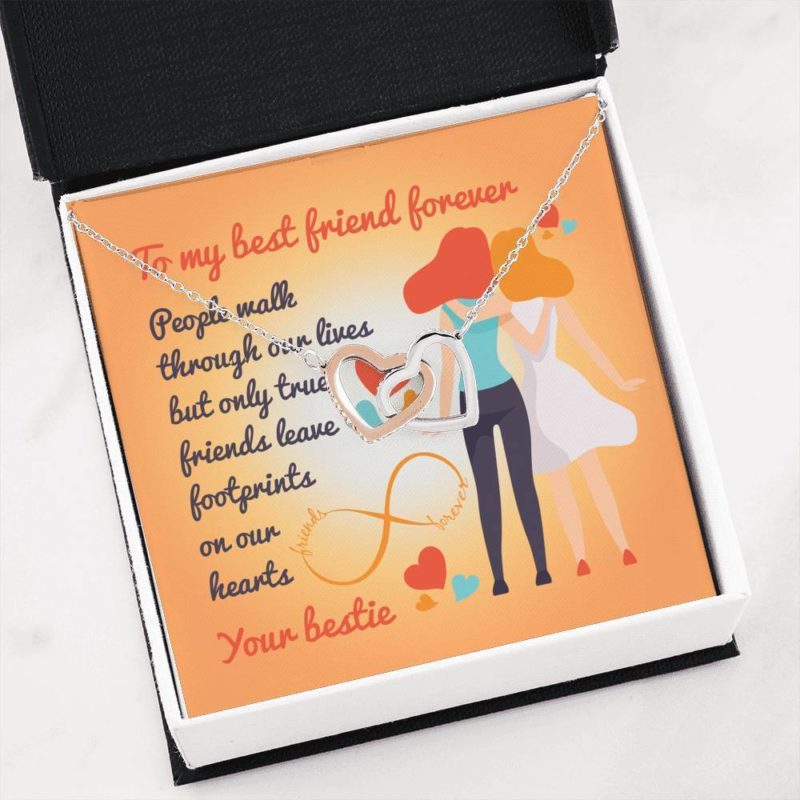 To my best friend forever
People walk
through our lives
but only true
friends leave
footprints
on our
hearts
friends forever
Your bestie